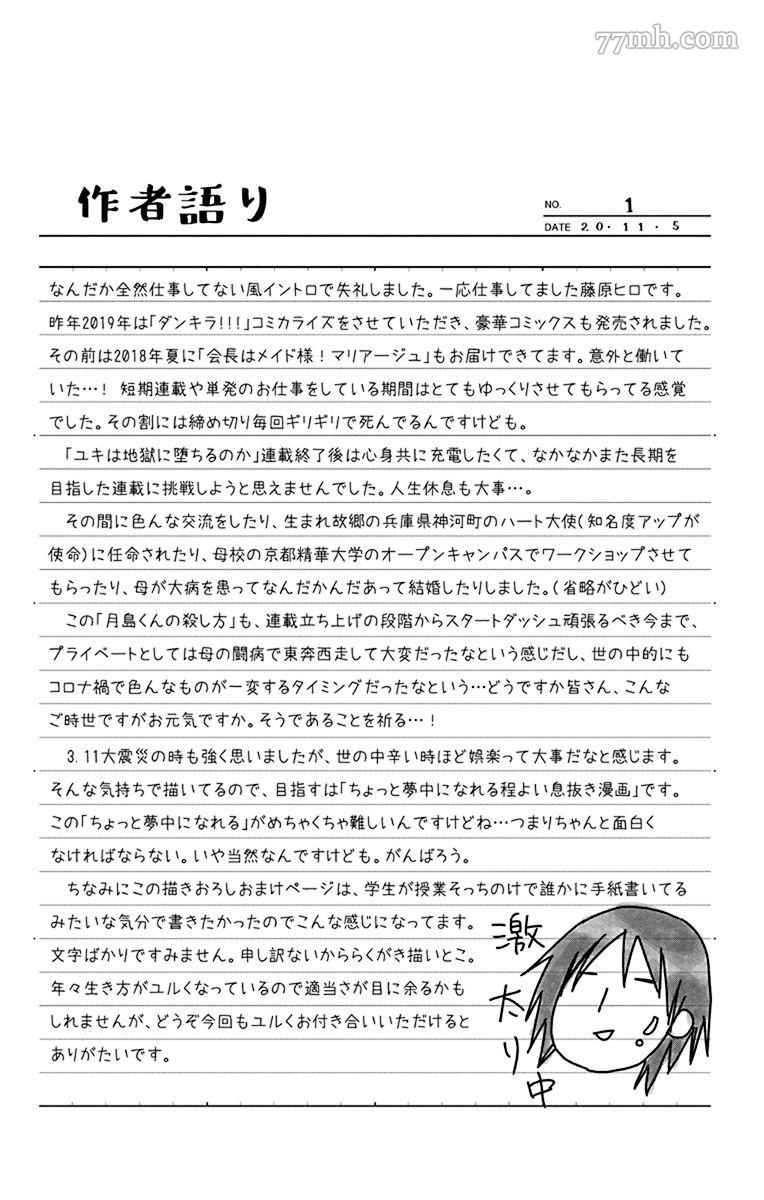 77mh.com
作者語り
NO. 1
DATE 20・11・5
なんだか全然仕事してない風イントロで失礼しました。一応仕事してました藤原ヒロです。
昨年2019年は「ダンキラ!!!」コミカライズをさせていただき、豪華コミックスも発売されました。
その前は2018年夏に「会長はメイド様！マリアージュ」もお届けできてます。意外と働いて
いた…！ 短期連載や単発のお仕事をしている期間はとてもゆっくりさせてもらってる感覚
でした。その割には締め切り毎回ギリギリで死んでるんですけども。
「ユキは地獄に堕ちるのか」連載終了後は心身共に充電したくて、なかなかまた長期を
目指した連載に挑戦しようと思えませんでした。人生休息も大事…。
その間に色んな交流をしたり、生まれ故郷の兵庫県神河町のハート大使(知名度アップが
使命)に任命されたり、母校の京都精華大学のオープンキャンパスでワークショップさせて
もらったり、母が大病を患ってなんだかんだあって結婚したりしました。(省略がひどい)
この「月島くんの殺し方」も、連載立ち上げの段階からスタートダッシュ頑張るべき今まで、
プライベートとしては母の闘病で東奔西走して大変だったなという感じだし、世の中的にも
コロナ禍で色んなものが一変するタイミングだったなという…どうですか皆さん、こんな
ご時世ですがお元気ですか。そうであることを祈る…！
3.11大震災の時も強く思いましたが、世の中辛い時ほど娯楽って大事だなと感じます。
そんな気持ちで描いてるので、目指すは「ちょっと夢中になれる程よい息抜き漫画」です。
この「ちょっと夢中になれる」がめちゃくちゃ難しいんですけどね…つまりちゃんと面白く
なければならない。いや当然なんですけども。がんばろう。
ちなみにこの描きおろしおまけページは、学生が授業そっちのけで誰かに手紙書いてる
みたいな気分で書きたかったのでこんな感じになってます。
文字ばかりですみません。申し訳ないかららくがき描いとこ。
年々生き方がユルくなっているので適当さが目に余るかも
しれませんが、どうぞ今回もユルくお付き合いいただけると
ありがたいです。
激太り中